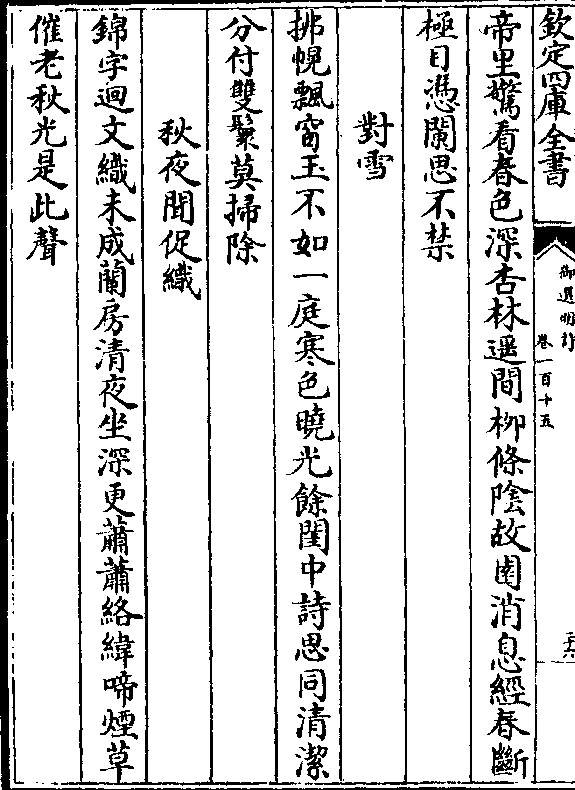 欽定四庫全書
御選明詩
卷一百十五
帝里驚看春色深杏林遥間柳條陰故園消息經春斷
極目憑闌思不禁
對雪
拂幌飄窗玉不如一庭寒色曉光餘閨中詩思同清潔
分付雙鬟莫掃除
秋夜聞促織
錦字迴文織未成蘭房清夜坐深更蕭蕭絡緯啼煙草
催老秋光是此聲